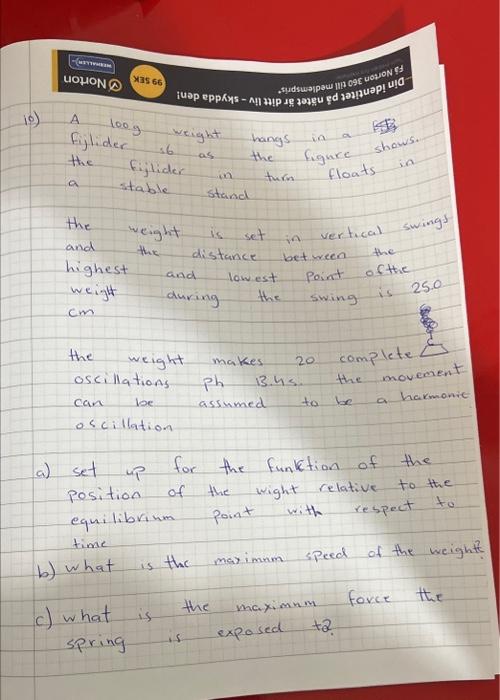 Din identitet på nätet är ditt liv – skydda den!
Få Norton 360 till medlemspris*
99 SEK
Norton
10)
A 100g weight hangs in a
Fijlider 16 as the figure shows.
the Fijlider in turn floats in
a stable stand
the weight is set in vertical swings
and the distance between the
highest and lowest Point of the
weight during the swing is 25.0
cm
the weight makes 20 complete
oscillations Ph 13.4s. the movement
can be assumed to be a harmonic
oscillation
a) set up for the funktion of the
Position of the wight relative to the
equilibrinm Point with respect to
time
b) what is the maximnm speed of the weight?
c) what is the maximnm force the
spring is exposed to?